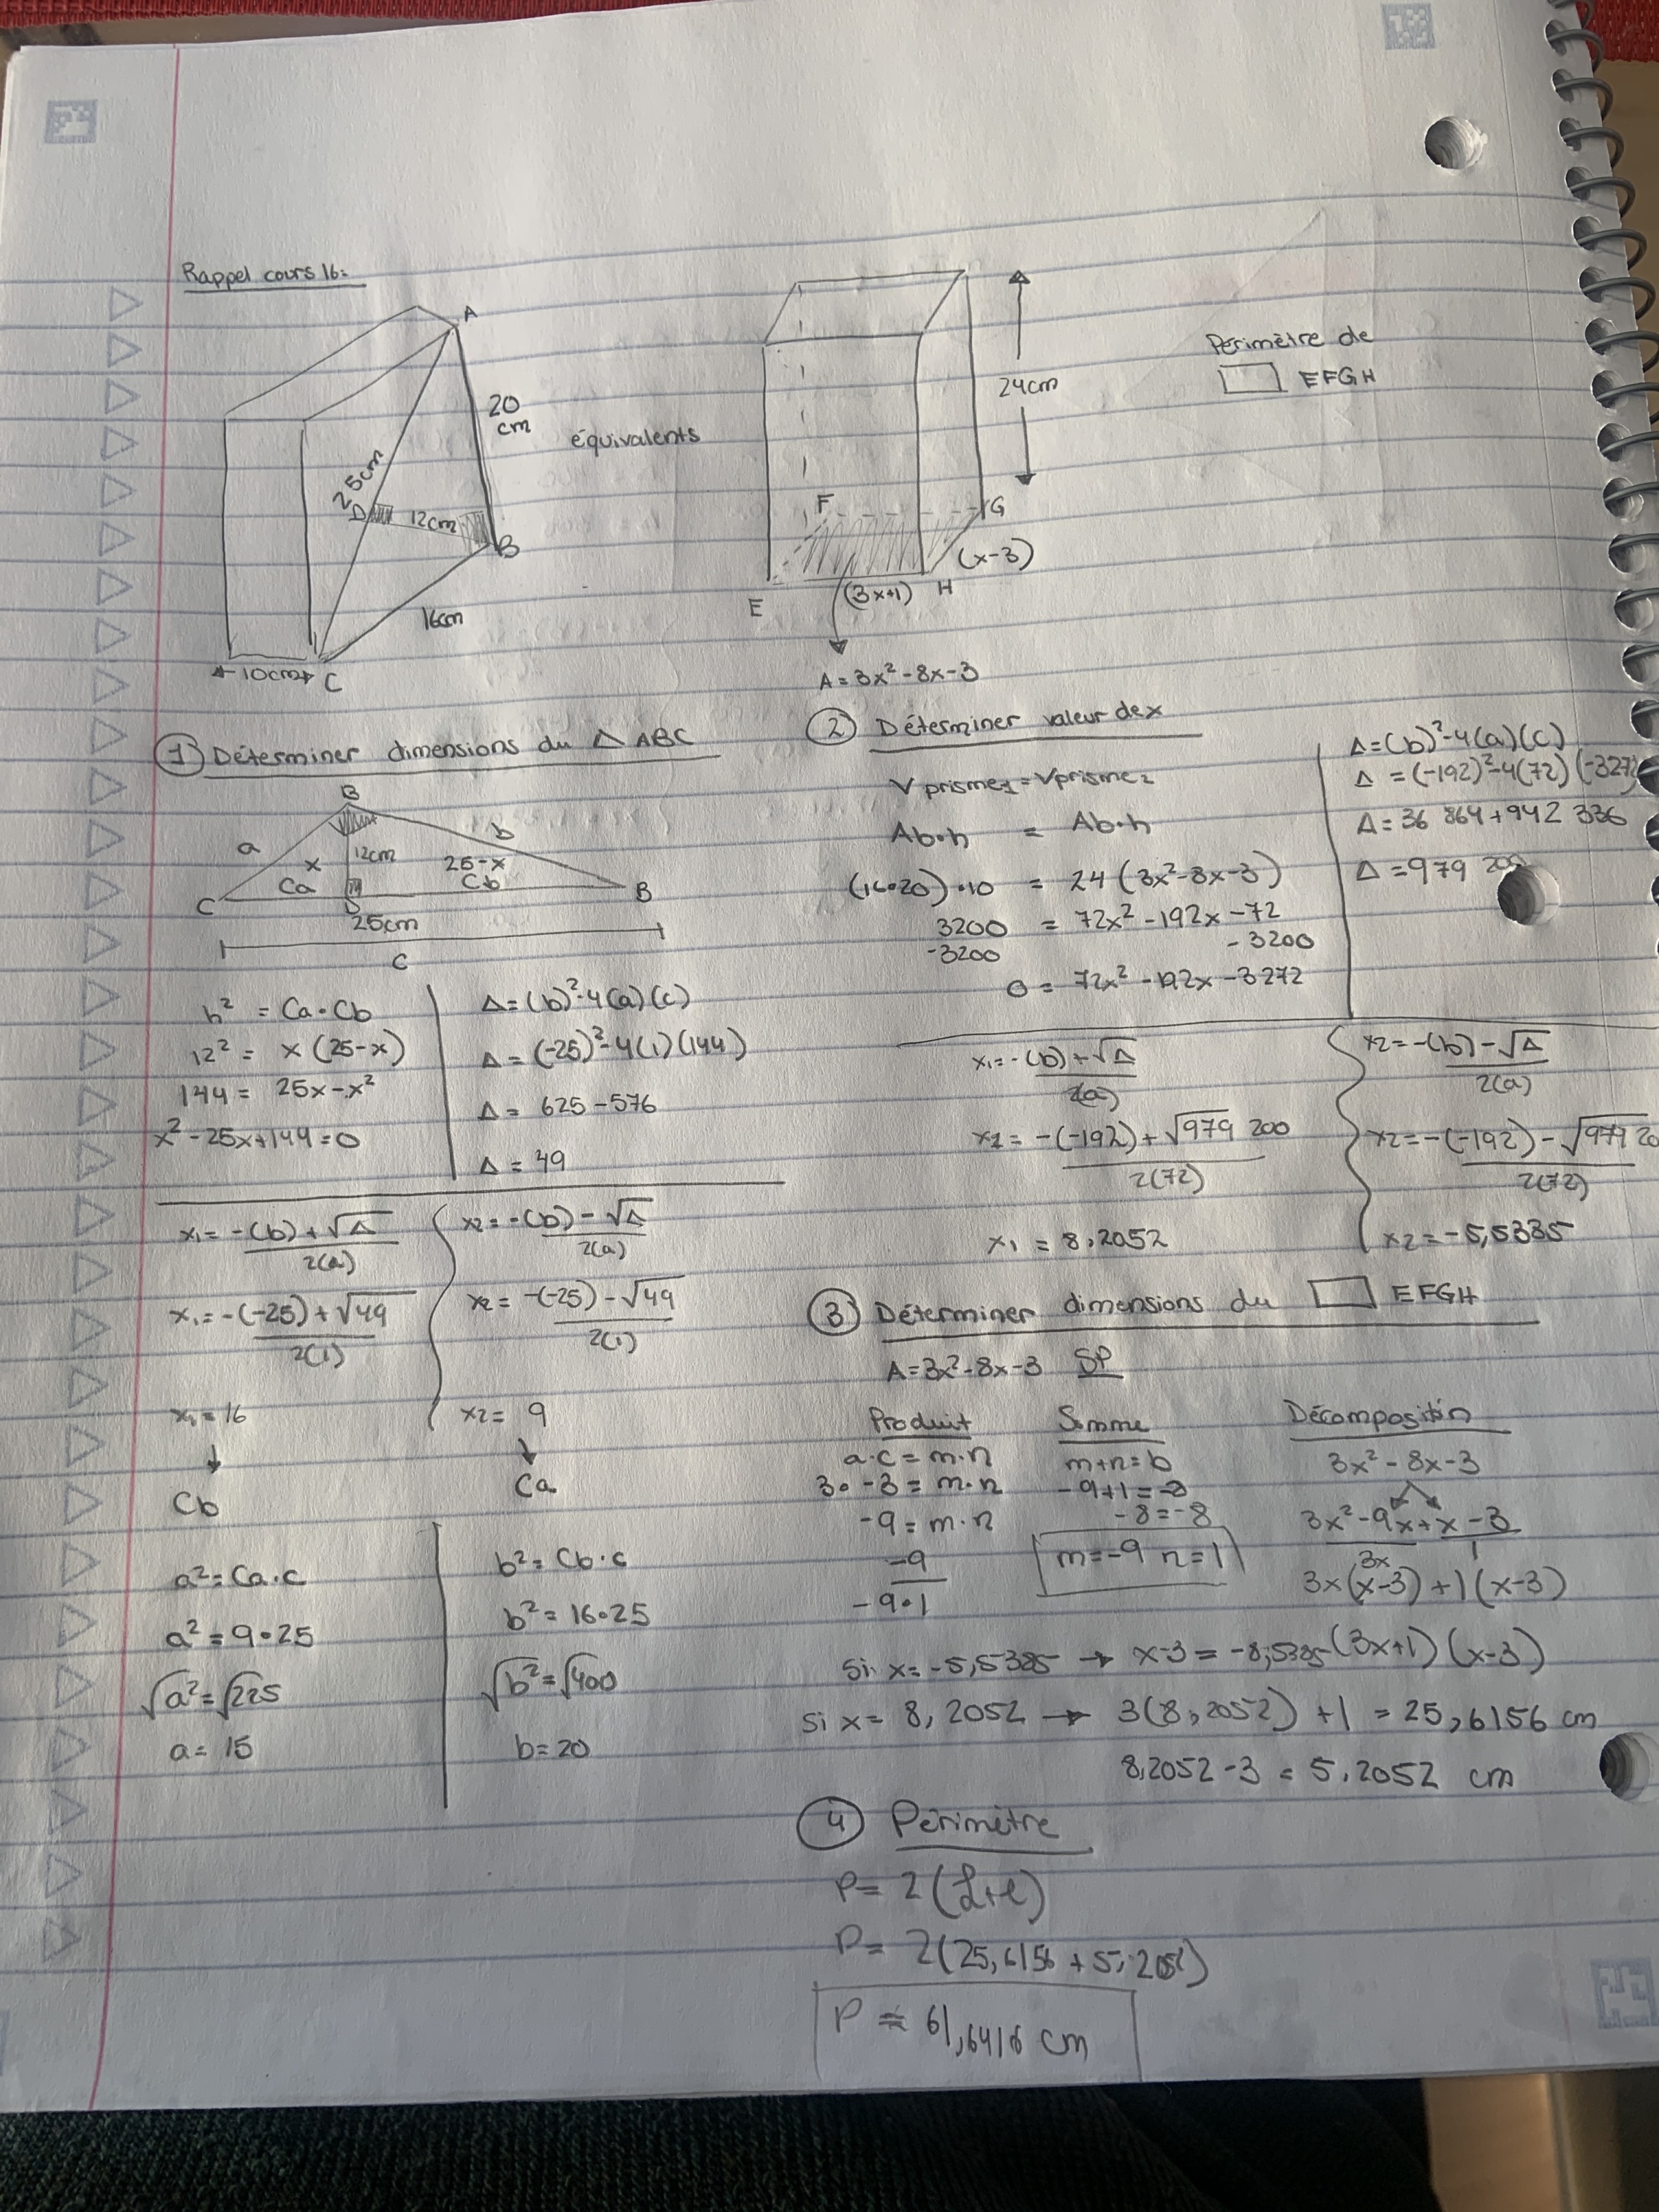 Rappel cours 16:
A
20 cm
25cm
D
12cm
B
16cm
10cm
C
équivalents
24cm
F
G
(x-3)
(3x+1)
H
E
A = 3x² - 8x - 3
Périmètre de
EFGH
① Déterminer dimensions du △ ABC
B
a
b
x
12cm
25-x
Ca
Cb
C
D
B
25cm
c
h² = Ca · Cb
12² = x (25-x)
144 = 25x - x²
x² - 25x + 144 = 0
Δ = (b)² - 4(a)(c)
Δ = (-25)² - 4(1)(144)
Δ = 625 - 576
Δ = 49
x₁ = -(b) + √Δ
2(a)
x₁ = -(-25) + √49
2(1)
x₁ = 16
↓
Cb
x₂ = -(b) - √Δ
2(a)
x₂ = -(-25) - √49
2(1)
x₂ = 9
↓
Ca
a² = Ca · c
a² = 9 · 25
√a² = √225
a = 15
b² = Cb · c
b² = 16 · 25
√b² = √400
b = 20
② Déterminer valeur de x
V prisme₁ = V prisme₂
Ab · h = Ab · h
(16 · 20) · 10 = 24 (3x² - 8x - 3)
3200 = 72x² - 192x - 72
-3200 - 3200
0 = 72x² - 192x - 3272
Δ = (b)² - 4(a)(c)
Δ = (-192)² - 4(72)(-3272)
Δ = 36 864 + 942 336
Δ = 979 200
x₁ = -(b) + √Δ
2(a)
x₁ = -(-192) + √979 200
2(72)
x₁ = 8,2052
x₂ = -(b) - √Δ
2(a)
x₂ = -(-192) - √979 20
2(72)
x₂ = -5,5385
③ Déterminer dimensions du EFGH
A = 3x² - 8x - 3 SP
Produit
a · c = m · n
3 · -3 = m · n
-9 = m · n
-9
-9 · 1
Somme
m + n = b
-9 + 1 = -8
-8 = -8
m = -9 n = 1
Décomposition
3x² - 8x - 3
3x² - 9x + x - 3
3x 1
3x(x-3) + 1(x-3)
(3x+1)(x-3)
Si x = -5,5385 → x-3 = -8,5385
Si x = 8,2052 → 3(8,2052) + 1 = 25,6156 cm
8,2052 - 3 = 5,2052 cm
④ Périmètre
P = 2(L+l)
P = 2(25,6156 + 5,2052)
P ≈ 61,6416 cm